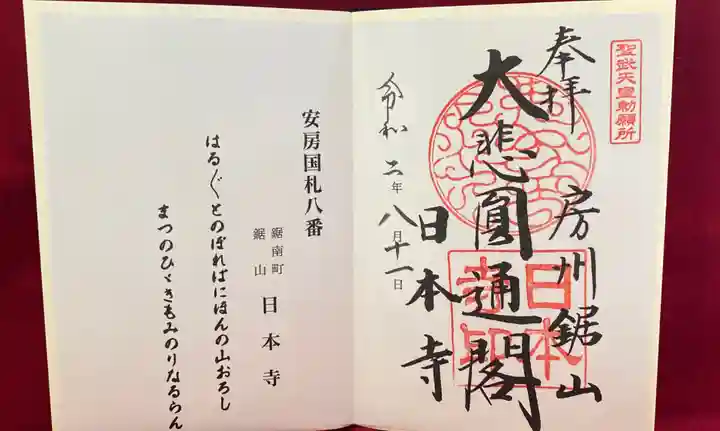 聖武天皇勅願所
奉拝
房州鋸山
大悲圓通閣
日本寺
令和二年八月十一日
日本寺印
安房国札八番
鋸南町
鋸山
日本寺
はる〴〵とのぼればにほんの山おろし
まつのひゞきもみのりなるらん